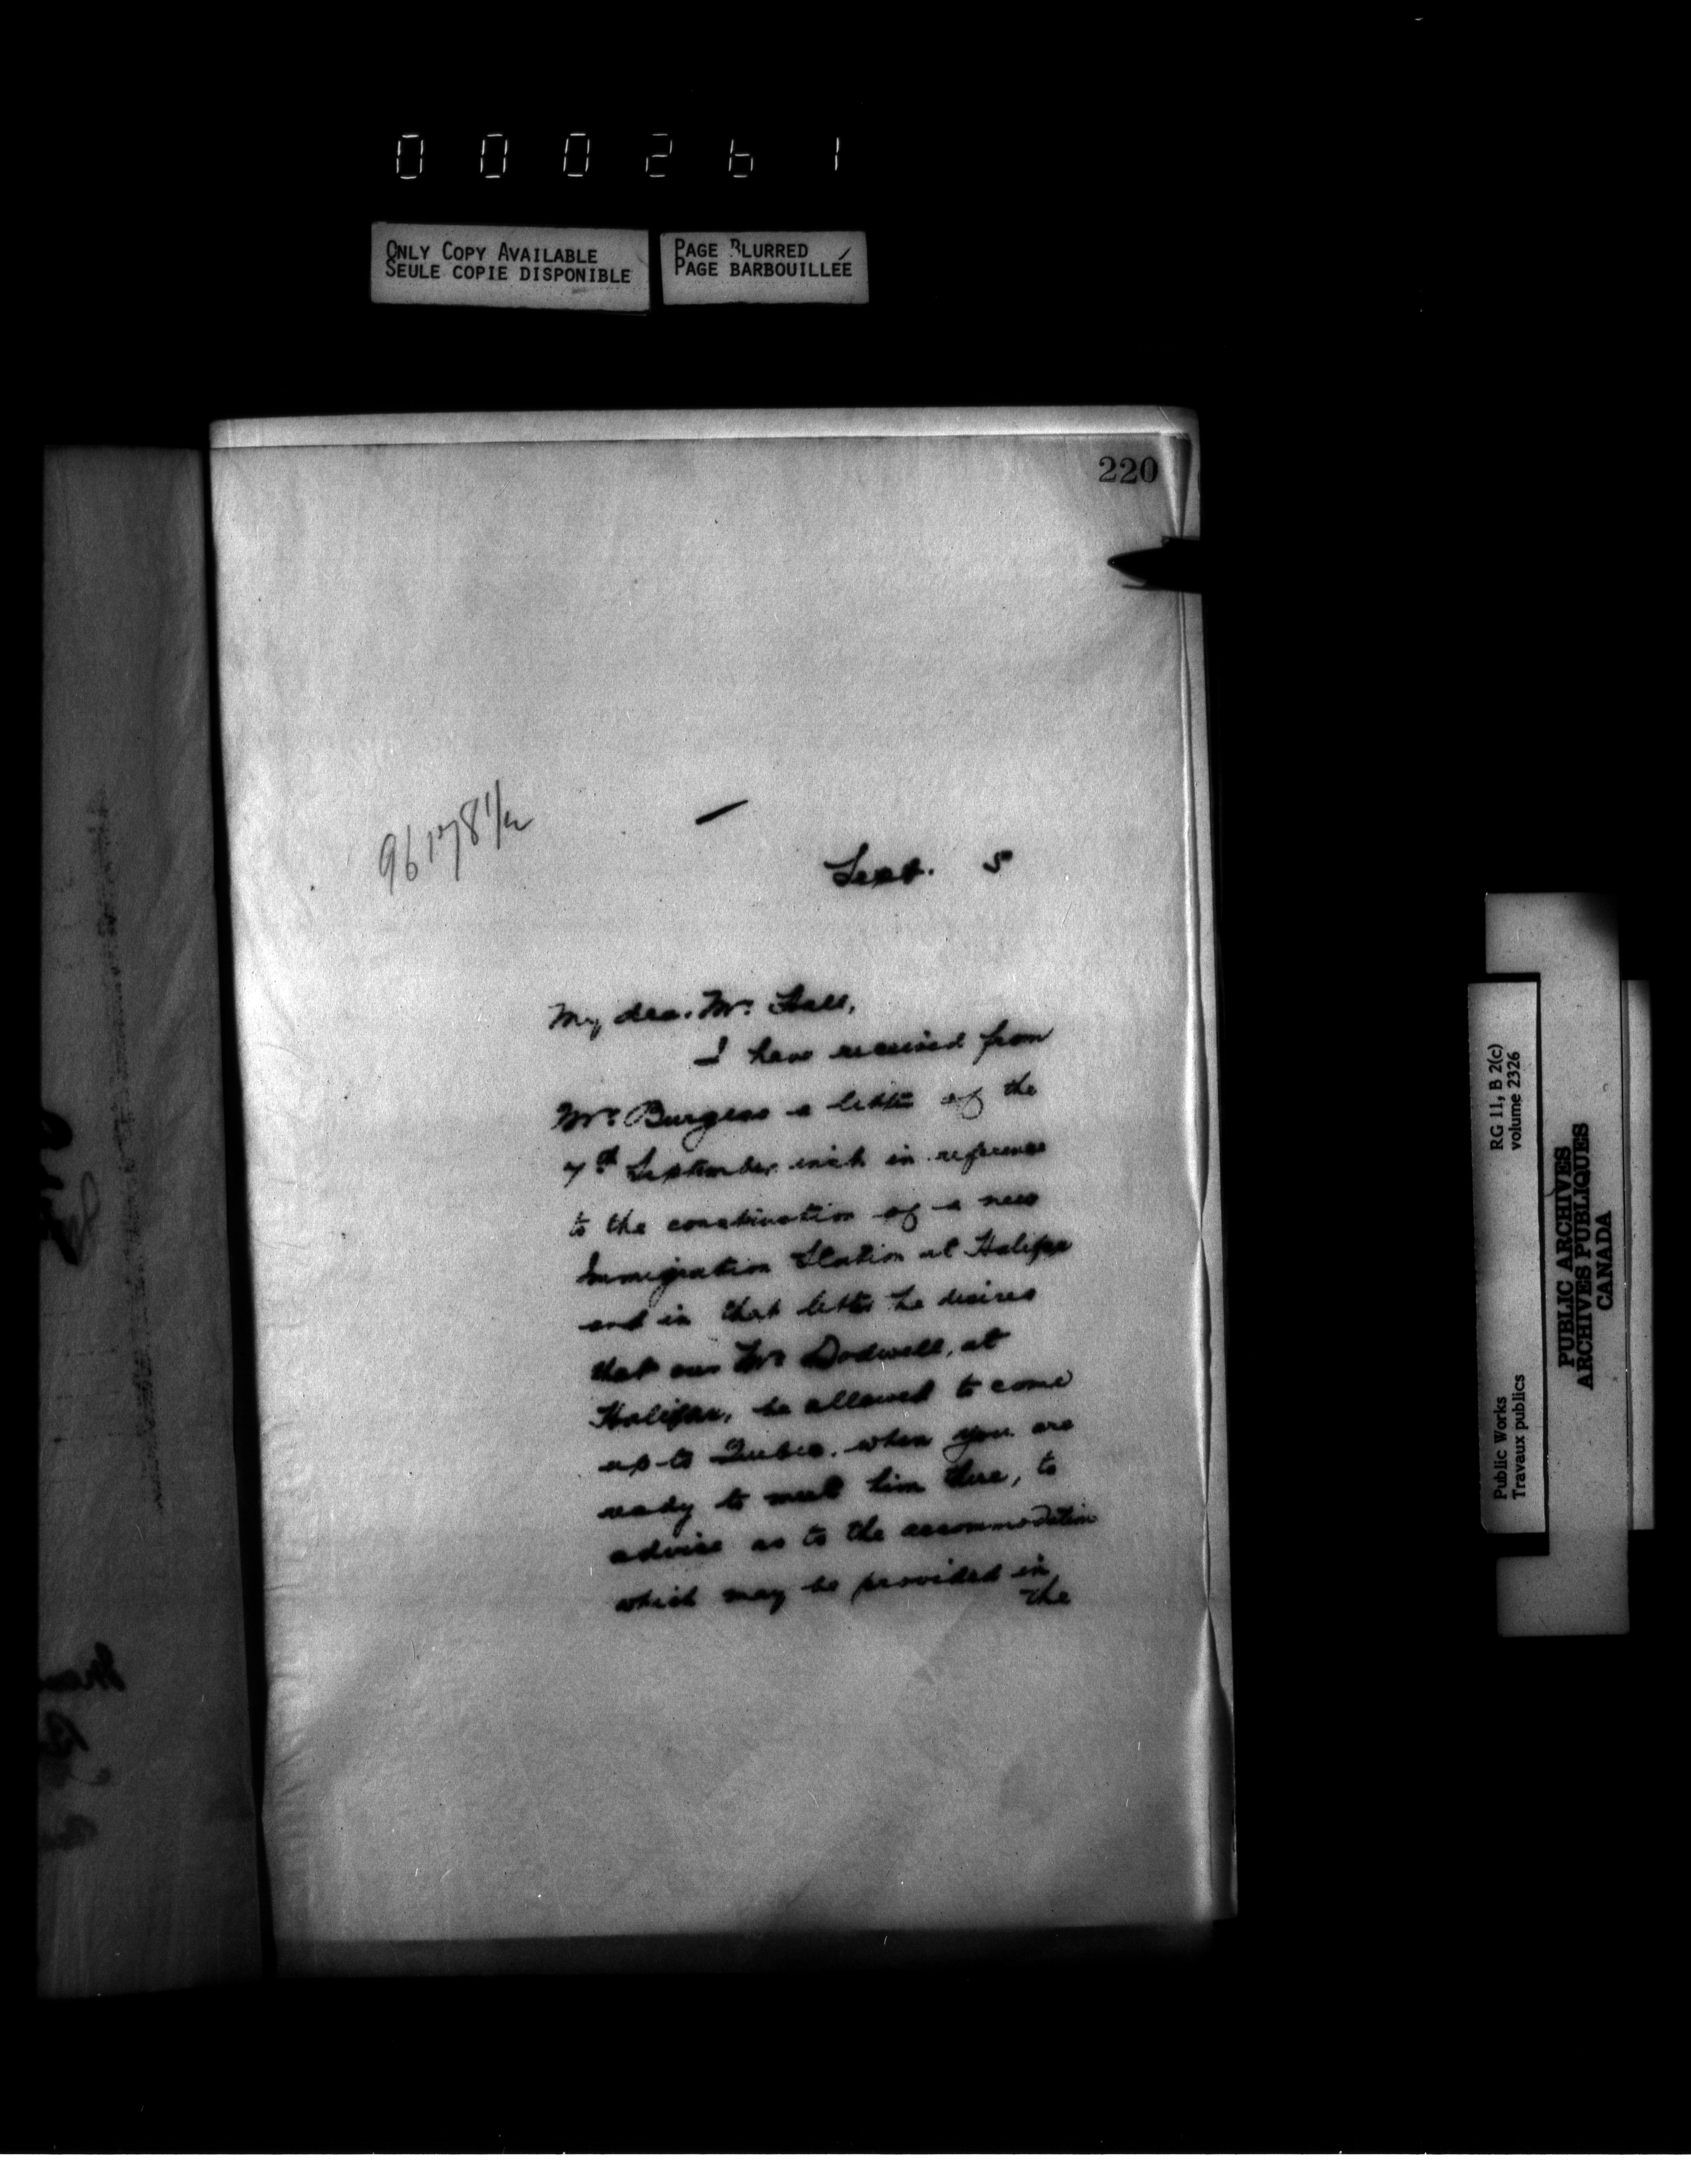 000261
ONLY COPY AVAILABLE
SEULE COPIE DISPONIBLE
PAGE BLURRED
PAGE BARBOUILLÉE
220
96178 1/2
Sept. 5
My dear Mr. Hall,
I have received from
Mr. Burgess a letter of the
7th September inst. in reference
to the construction of a new
Immigration Station at Halifax
and in that letter he desires
that our Mr. Dodwell, at
Halifax, be allowed to come
up to Quebec, when you are
ready to meet him there, to
advise as to the accommodation
which may be provided in
the
Public Works
Travaux publics
RG 11, B 2(c)
volume 2326
PUBLIC ARCHIVES
ARCHIVES PUBLIQUES
CANADA